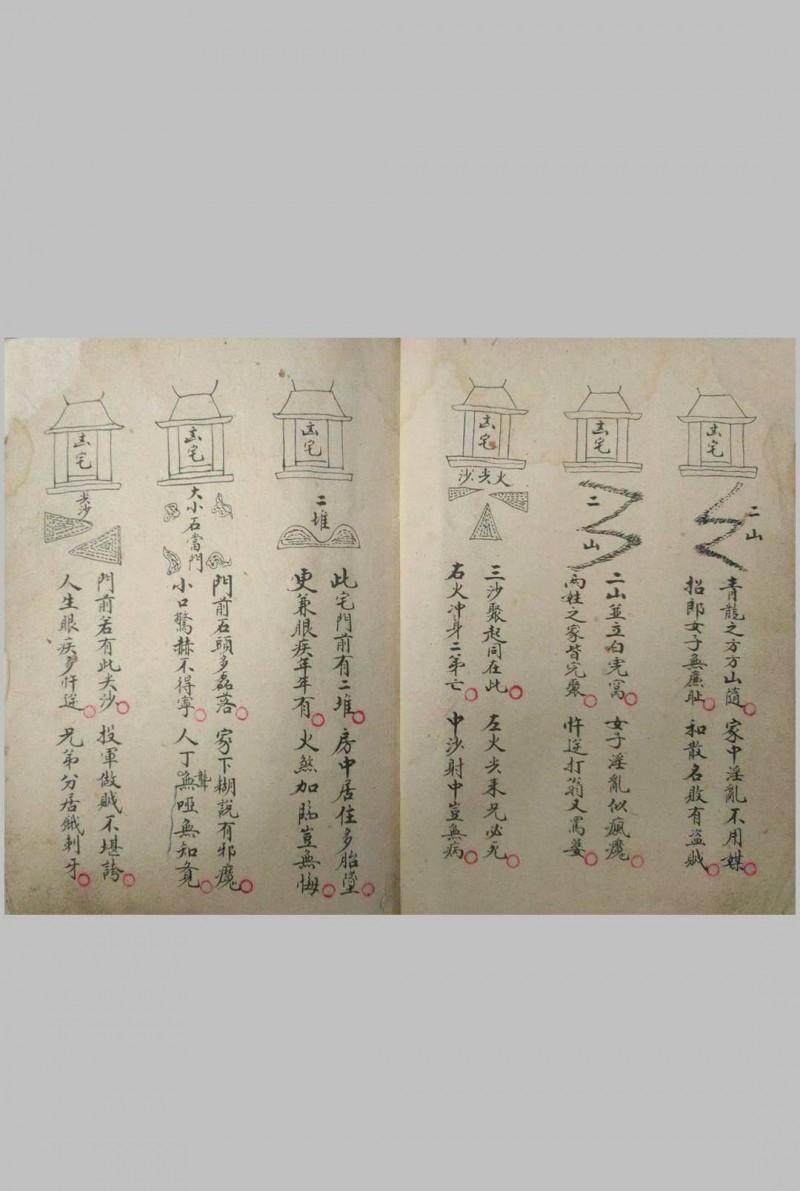 㐫宅
二山
青龍之方方山隨 家中淫亂不用媒
招郎女子無廉耻 和散名敗有盜賊
㐫宅
二山
二山並立白虎窩 女子淫亂似瘋魔
兩姓之家皆完聚 忤逆打翁又罵婆
㐫宅
火尖沙
三沙聚起同在此 左火尖來兄必死
右火冲身二弟亡 中沙射中豈無病
㐫宅
二堆
此宅門前有二堆 房中居住多胎墮
更兼眼疾年年有 火煞加臨豈無悔
㐫宅
大小石當門
門前石頭多磊落 家下糊說有邪魔
小口驚赫不得寧 人丁聾啞無知覚
㐫宅
尖沙
門前若有此尖沙 投軍做賊不堪誇
人生眼疾多忤逆 兄弟分居餓剌牙